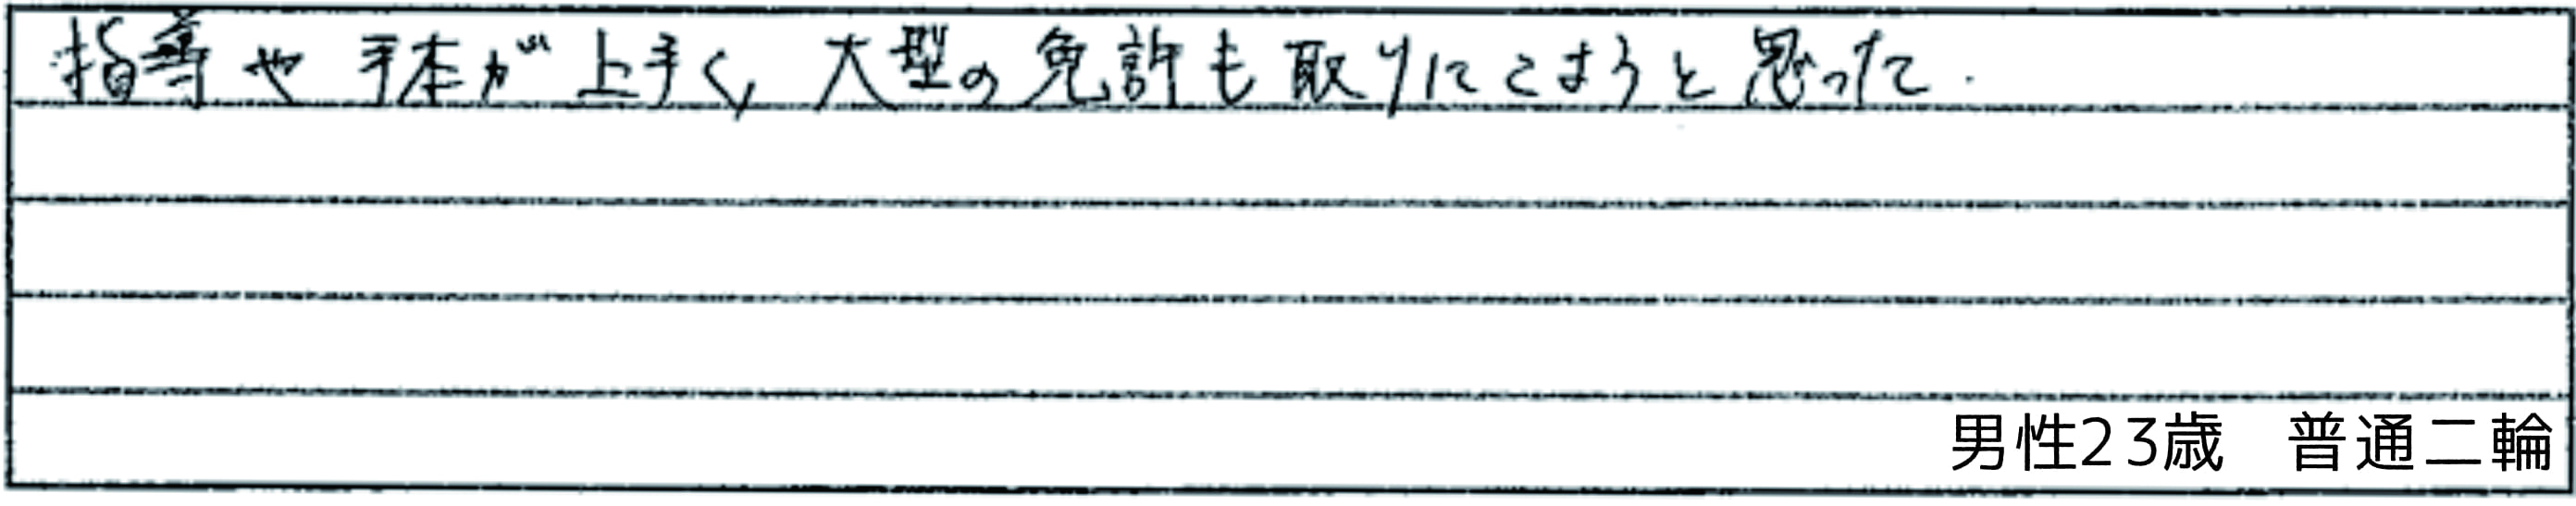 指導や手本が上手く,大型の免許も取りにこようと思った.
男性23歳 普通二輪